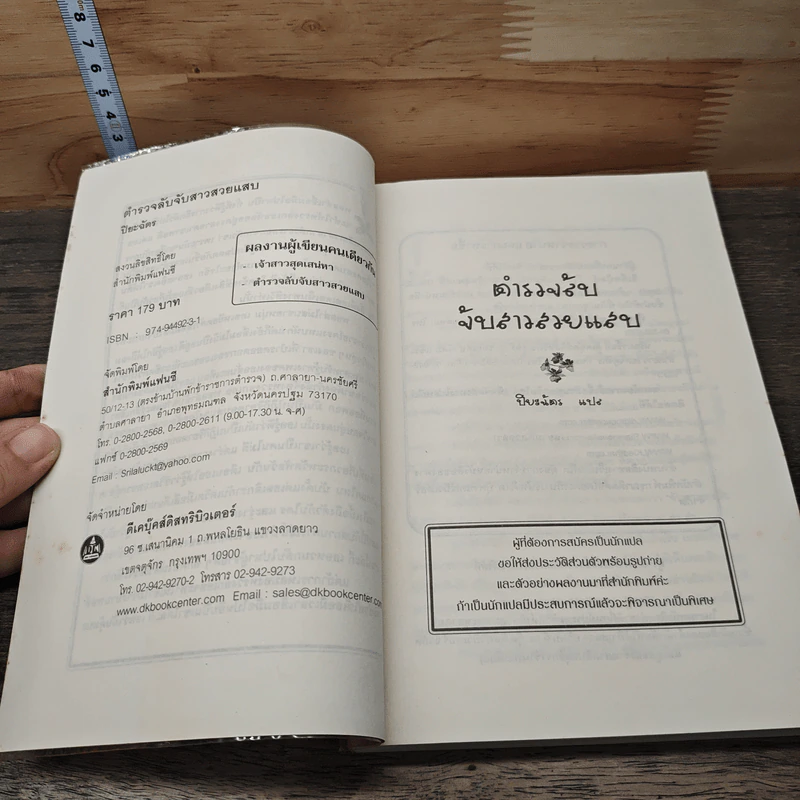 8
7
6
5
4
3
ตำรวจลับจับสาวสวยแสบ
ปิยะฉัตร
สงวนลิขสิทธิ์โดย
สำนักพิมพ์แฟนซี
ราคา 179 บาท
ISBN : 974-94492-3-1
ผลงานผู้เขียนคนเดียวกัน
- เจ้าสาวสุดเสน่หา
- ตำรวจลับจับสาวสวยแสบ
จัดพิมพ์โดย
สำนักพิมพ์แฟนซี
50/12-13 (ตรงข้ามบ้านพักข้าราชการตำรวจ) ถ.ศาลายา-นครชัยศรี
ตำบลศาลายา อำเภอพุทธมณฑล จังหวัดนครปฐม 73170
โทร. 0-2800-2568, 0-2800-2611 (9.00-17.30 น. จ-ศ)
แฟกซ์ 0-2800-2569
Email : Srilaluckt@yahoo.com
จัดจำหน่ายโดย
ดีเคบุ๊คส์ดิสทริบิวเตอร์
96 ซ.เสนานิคม 1 ถ.พหลโยธิน แขวงลาดยาว
เขตจตุจักร กรุงเทพฯ 10900
โทร. 02-942-9270-2 โทรสาร 02-942-9273
www.dkbookcenter.com Email : sales@dkbookcenter.com
ตำรวจลับ
จับสาวสวยแสบ
ปิยะฉัตร แปล
ผู้ที่ต้องการสมัครเป็นนักแปล
ขอให้ส่งประวัติส่วนตัวพร้อมรูปถ่าย
และตัวอย่างผลงานมาที่สำนักพิมพ์ค่ะ
ถ้าเป็นนักแปลมีประสบการณ์แล้วจะพิจารณาเป็นพิเศษ